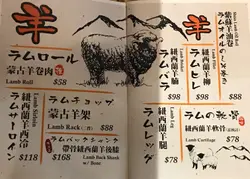 羊
ラムロール
蒙古羊卷肉
Lamb Roll
$58
ラムサーロイン
紐西蘭羊西冷
Lamb Sirloin
$118
ラムチョップ
蒙古羊架
Lamb Rack
$88
ラムバックシャンク
帶骨紐西蘭羊後腿
Lamb Back Shank
w/ Bone
$168
羊
紫蘇羊油卷
$58
ラム
紐西蘭羊柳
$158
ラムバラ
紐西蘭羊腩
$98
ラムレッグ
紐西蘭羊腿
Lamb Leg
$78
ラムの軟骨
紐西蘭羊軟骨
Lamb Cartilage
$78